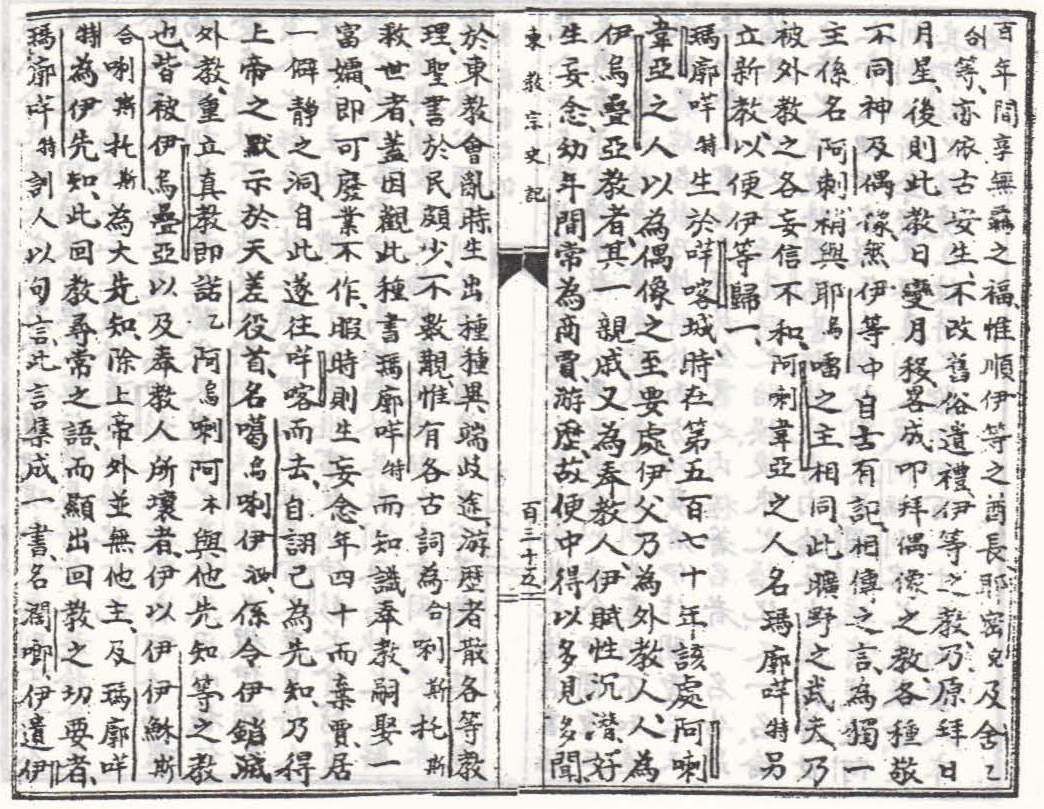 百年間享無盡之福、惟順伊等之酋長耶密兒及舍乙
台等、亦依古安生、不改舊俗遺禮、伊等之教、乃原拜日
月星、後則此教日變月移畧成叩拜偶像之教、各種敬
不同神及偶像、無伊等中自古有記、相傳之言、為獨一
主係名阿剌稍、與耶烏嚅之主相同、此曠野之武夫、乃
被外教之各妄信不和、阿喇韋亞之人名瑪廓咩特另
立新教、以便伊等歸一、
瑪廓咩特生於咩喀城、時在第五百七十年、該處阿喇
韋亞之人以為偶像之至要處、伊父乃為外教人、人為
伊烏疊亞教者、其一親戚、又為奉教人、伊賦性沉潛、好
生妄念、幼年間常為商賈、游歷、故便中得以多見多聞
東教宗史記
百三十五
於東教會亂時、生出種種異端歧途、游歷者散各等教
理、聖書於民頗少、不數觀、惟有各古詞為合唎斯托斯
救世者、蓋因觀此種書瑪廓咩特而知識奉教、嗣娶一
富孀、即可廢業不作、暇時則生妄念、年四十而棄賈、居
一僻靜之洞、自此遂往咩喀而去、自詡己為先知、乃得
上帝之默示於天差役首、名噶烏唎伊泐、係令伊鎖滅
外教、重立真教、即諾乙阿烏唎阿木與他先知等之教
也、皆被伊烏疊亞以及奉教人所壞者、伊以伊伊穌斯
合唎斯托斯為大先知、除上帝外並無他主、及瑪廓咩
特為伊先知、此回教尋常之語、而顯出回教之切要者、
瑪廓咩特訓人以句言、此言集成一書、名閣啷、伊遺伊